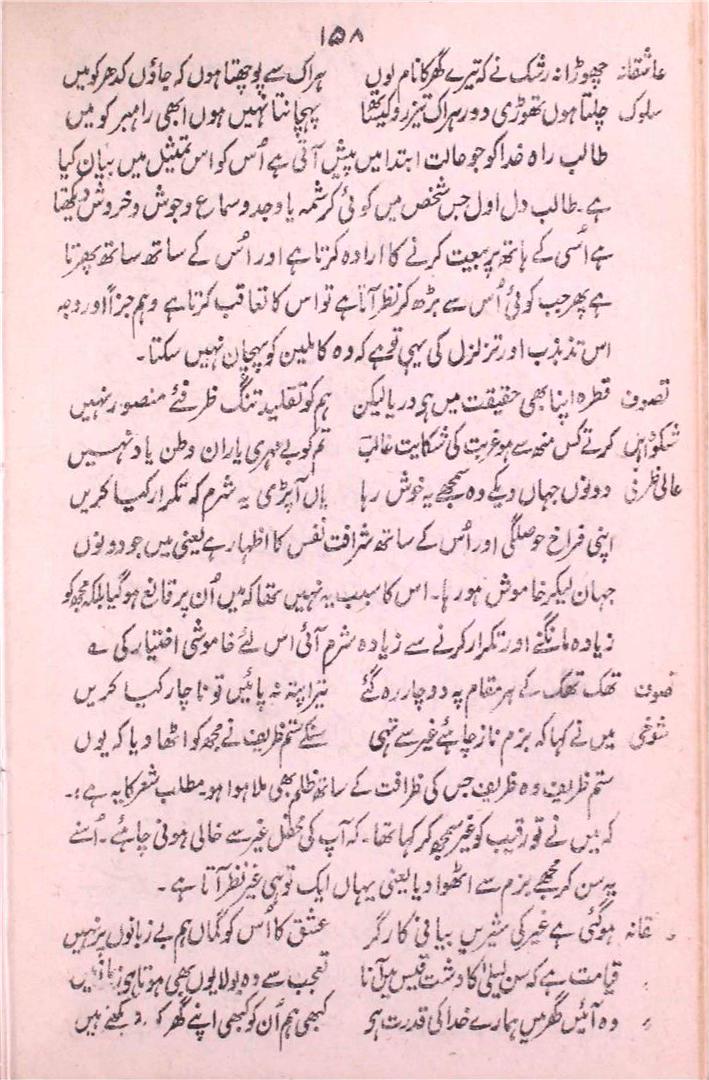 ۱۵۸
عاشقانہ چھوڑا نہ رشک نے کہ تیرے گھر کا نام لوں ہراک سے پوچھتا ہوں کہ جاؤں کدھر کو میں
سلوک چلتا ہوں تھوڑی دور ہر اک تیزرو کیساتھ پہچانتا نہیں ہوں ابھی راہبر کو میں
طالب راہ خدا کو جو حالت ابتدا میں پیش آتی ہے اُس کو اس تمثیل میں بیان کیا
ہے۔ طالب دل اول جس شخص میں کوئی کرشمہ یا وجد و سماع و جوش و خروش دیکھتا
ہے اُسی کے ہاتھ پر بیعت کرنے کا ارادہ کرتا ہے اور اُس کے ساتھ ساتھ پھرتا
ہے پھر جب کوئی اُس سے بڑھ کر نظر آتا ہے تو اس کا تعاقب کرتا ہے وہم جراً اور وجہ
اس تذبذب اور تزلزل کی یہی ہے کہ وہ کاملین کو پہچان نہیں سکتا۔
تصوف قطرہ اپنا بھی حقیقت میں ہی دریا لیکن ہم کو تقلید تنگ ظرفئے منصور نہیں
کرتے کس منھ سے ہو غربت کی شکایت غالبؔ تم کو بے مہری یاران وطن یاد نہیں
عالی ظرفی دونوں جہاں دیکے وہ سمجھے یہ خوش رہا یاں آپڑی یہ شرم کہ تکرار کیا کریں
اپنی فراخ حوصلگی اور اُس کے ساتھ شرافت نفس کا اظہار ہے یعنی میں جو دونوں
جہان لیکر خاموش ہو رہا۔ اس کا سبب یہ نہیں تھا کہ میں اُن پر قانع ہوگیا بلکہ مجھ کو
زیادہ مانگنے اور تکرار کرنے سے زیادہ شرم آئی اس لئے خاموشی اختیار کی ؎
تصوف تھک تھک کے ہر مقام پہ دو چار رہ گئے تیرا پتہ نہ پائیں تو ناچار کیا کریں
شوخی میں نے کہا کہ بزم ناز چاہئے غیر سے تہی سنکے ستم ظریف نے مجھ کو اٹھا دیا کہ یوں
ستم ظریف وہ ظریف جس کی ظرافت کے ساتھ ظلم بھی ملا ہوا ہو۔ مطلب شعر کا یہ ہے:۔
کہ میں نے تو رقیب کو غیر سمجھ کر کہا تھا۔ کہ آپ کی محفل غیر سے خالی ہونی چاہئے۔ اُسنے
یہ سن کر مجھے بزم سے اٹھوا دیا یعنی یہاں ایک تو ہی غیر نظر آتا ہے۔
ہوگئی ہے غیر کی شیریں بیانی کارگر عشق کا اُس کو گماں ہم بے زبانوں پر نہیں
قیامت ہے کہ سن لیلیٰ کا دشت قیس میں آنا تعجب سے وہ بولا یوں بھی ہوتا ہی زمانے میں
وہ آئیں گھر میں ہمارے خدا کی قدرت ہو کبھی ہم اُن کو کبھی اپنے گھر کو دیکھتے ہیں